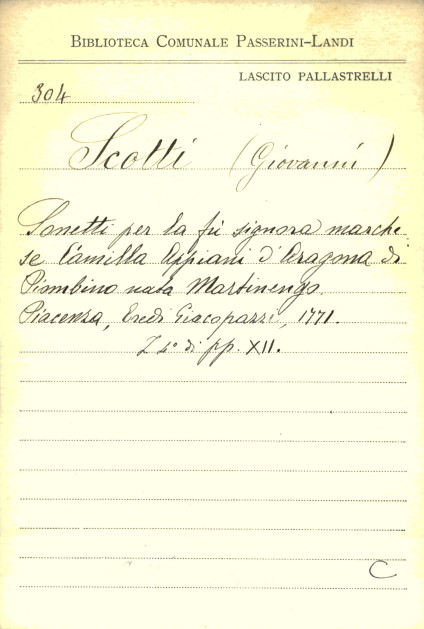 BIBLIOTECA COMUNALE PASSERINI-LANDI
LASCITO PALLASTRELLI
304
Scotti (Giovanni)
Sonetti per la fù signora marche
se Camilla Appiani d'Aragona di
Piombino nata Martinengo.
Piacenza, Eredi Giacopazzi, 1771.
di pp. XII.
C